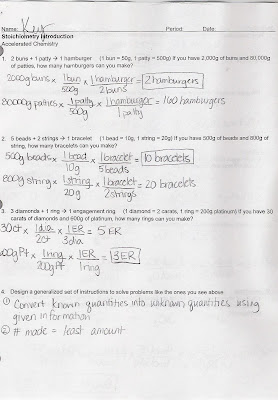 Name: Key Period: Date:
Stoichiometry Introduction
Accelerated Chemistry
1. 2 buns + 1 patty → 1 hamburger (1 bun = 50g, 1 patty = 500g) If you have 2,000g of buns and 80,000g
of patties, how many hamburgers can you make?
2000g buns x 1 bun / 500g x 1 hamburger / 2 buns = 2 hamburgers
80000g patties x 1 patty / 500g x 1 hamburger / 1 patty = 160 hamburgers
2. 5 beads + 2 strings → 1 bracelet (1 bead = 10g, 1 string = 20g) If you have 500g of beads and 800g of
string, how many bracelets can you make?
500g beads x 1 bead / 10g x 1 bracelet / 5 beads = 10 bracelets
800g string x 1 string / 20g x 1 bracelet / 2 strings = 20 bracelets
3. 3 diamonds + 1 ring → 1 engagement ring (1 diamond = 2 carats, 1 ring = 200g platinum) If you have 30
carats of diamonds and 600g of platinum, how many rings can you make?
30ct x 1dia / 2ct x 1ER / 3dia = 5 ER
600g Pt x 1 ring / 200g Pt x 1ER / 1 ring = 3ER
4. Design a generalized set of instructions to solve problems like the ones you see above.
① Convert known quantities into unknown quantities using
given information
② # made = least amount